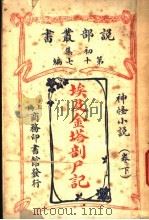 說部叢書
初集
第十七編
神怪小說
（卷下）
埃及金塔剖尸記
上海商務印書館發行